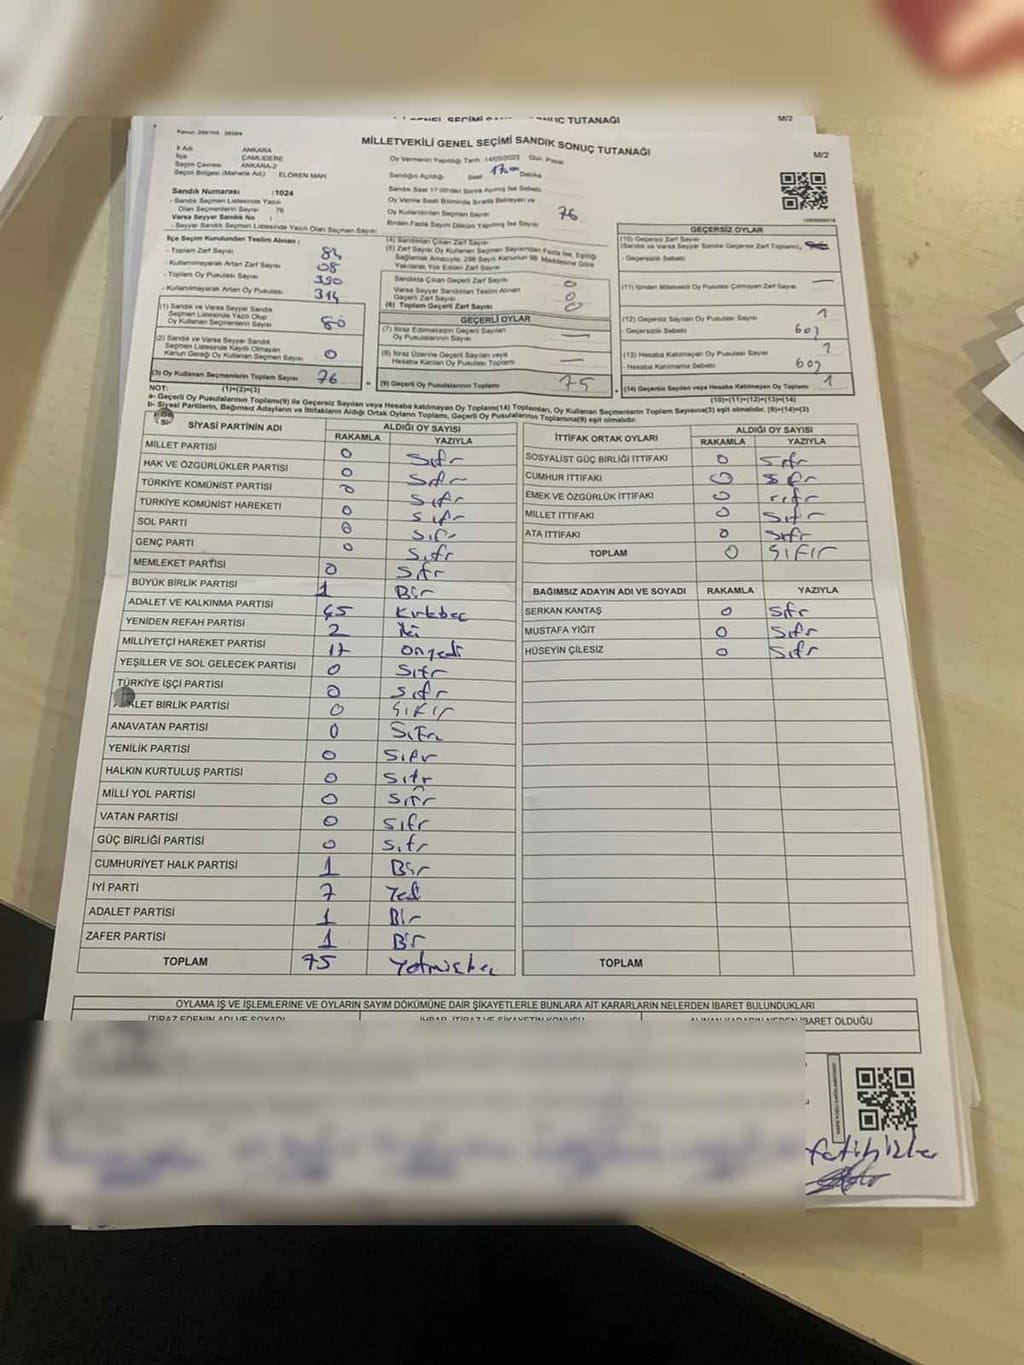 GENEL SEÇİMİ SANDIK SONUÇ TUTANAĞI
M/2
MİLLETVEKİLİ GENEL SEÇİMİ SANDIK SONUÇ TUTANAĞI
M/2
İl Adı ANKARA
İlçe ÇAMLIDERE
Seçim Çevresi ANKARA-2
Seçim Bölgesi (Mahalle Adı) : ELÖREN MAH
Oy Vermenin Yapıldığı Tarih :14/05/2023 Gün Pazar
Sandığın Açıldığı Saat 17:00 Dakika
Sandık Saat 17:00'den Sonra Açılmış İse Sebebi
Oy Verme Saati Bitiminde Sırada Bekleyen ve
Oy Kullandırılan Seçmen Sayısı 76
Birden Fazla Sayım Döküm Yapılmış İse Sayısı
Sandık Numarası :1024
- Sandık Seçmen Listesinde Yazılı
Olan Seçmenlerin Sayısı 76
Varsa Seyyar Sandık No :
- Seyyar Sandık Seçmen Listesinde Yazılı Olan Seçmen Sayısı
İlçe Seçim Kurulundan Teslim Alınan ;
- Toplam Zarf Sayısı 84
- Kullanılmayarak Artan Zarf Sayısı 08
- Toplam Oy Pusulası Sayısı 390
- Kullanılmayarak Artan Oy Pusulası 314
(1) Sandık ve Varsa Seyyar Sandık
Seçmen Listesinde Yazılı Olup
Oy Kullanan Seçmenlerin Sayısı 80
(2) Sandık ve Varsa Seyyar Sandık
Seçmen Listesinde Kayıtlı Olmayan
Kanun Gereği Oy Kullanan Seçmen Sayısı 0
(3) Oy Kullanan Seçmenlerin Toplam Sayısı 76
(1)+(2)=(3)
(4) Sandıktan Çıkan Zarf Sayısı
(5) Zarf Sayısı Oy Kullanan Seçmen Sayısından Fazla İse, Eşitliği
Sağlamak Amacıyla, 298 Sayılı Kanunun 98. Maddesine Göre
Yakılarak Yok Edilen Zarf Sayısı
Sandıkta Çıkan Geçerli Zarf Sayısı 0
Varsa Seyyar Sandıktan Teslim Alınan
Geçerli Zarf Sayısı 0
(6) Toplam Geçerli Zarf Sayısı 0
GEÇERLİ OYLAR
(7) İtiraz Edilmeksizin Geçerli Sayılan
Oy Pusulalarının Sayısı —
(8) İtiraz Üzerine Geçerli Sayılan veya
Hesaba Katılan Oy Pusulası Toplamı —
(9) Geçerli Oy Pusulalarının Toplamı 75
GEÇERSİZ OYLAR
(10) Geçersiz Zarf Sayısı
(Sandık ve Varsa Seyyar Sandık Geçersiz Zarf Toplamı)
- Geçersizlik Sebebi
(11) İçinden Milletvekili Oy Pusulası Çıkmayan Zarf Sayısı —
(12) Geçersiz Sayılan Oy Pusulası Sayısı 1
- Geçersizlik Sebebi
(13) Hesaba Katılmayan Oy Pusulası Sayısı 1
- Hesaba Katılmama Sebebi
(14) Geçersiz Sayılan veya Hesaba Katılmayan Oy Toplamı 1
(10)+(11)+(12)+(13)=(14)
NOT:
a- Geçerli Oy Pusulalarının Toplamı(9) ile Geçersiz Sayılan veya Hesaba katılmayan Oy Toplamı(14) Toplamları, Oy Kullanan Seçmenlerin Toplam Sayısına(3) eşit olmalıdır. (9)+(14)=(3)
b- Siyasi Partilerin, Bağımsız Adayların ve İttifakların Aldığı Ortak Oyların Toplamı, Geçerli Oy Pusulalarının Toplamına(9) eşit olmalıdır.
SİYASİ PARTİNİN ADI
ALDIĞI OY SAYISI
RAKAMLA YAZIYLA
MİLLET PARTİSİ 0 Sıfır
HAK VE ÖZGÜRLÜKLER PARTİSİ 0 Sıfır
TÜRKİYE KOMÜNİST PARTİSİ 0 Sıfır
TÜRKİYE KOMÜNİST HAREKETİ 0 Sıfır
SOL PARTİ 0 Sıfır
GENÇ PARTİ 0 Sıfır
MEMLEKET PARTİSİ 0 Sıfır
BÜYÜK BİRLİK PARTİSİ 1 Bir
ADALET VE KALKINMA PARTİSİ 45 Kırkbeş
YENİDEN REFAH PARTİSİ 2 İki
MİLLİYETÇİ HAREKET PARTİSİ 17 Onyedi
YEŞİLLER VE SOL GELECEK PARTİSİ 0 Sıfır
TÜRKİYE İŞÇİ PARTİSİ 0 Sıfır
ALET BİRLİK PARTİSİ 0 SIFIR
ANAVATAN PARTİSİ 0 Sıfır
YENİLİK PARTİSİ 0 Sıfır
HALKIN KURTULUŞ PARTİSİ 0 Sıfır
MİLLİ YOL PARTİSİ 0 Sıfır
VATAN PARTİSİ 0 Sıfır
GÜÇ BİRLİĞİ PARTİSİ 0 Sıfır
CUMHURİYET HALK PARTİSİ 1 Bir
İYİ PARTİ 7 Yedi
ADALET PARTİSİ 1 Bir
ZAFER PARTİSİ 1 Bir
TOPLAM 75 Yetmişbeş
İTTİFAK ORTAK OYLARI
ALDIĞI OY SAYISI
RAKAMLA YAZIYLA
SOSYALİST GÜÇ BİRLİĞİ İTTİFAKI 0 Sıfır
CUMHUR İTTİFAKI 0 Sıfır
EMEK VE ÖZGÜRLÜK İTTİFAKI 0 sıfır
MİLLET İTTİFAKI 0 Sıfır
ATA İTTİFAKI 0 Sıfır
TOPLAM 0 SIFIR
BAĞIMSIZ ADAYIN ADI VE SOYADI RAKAMLA YAZIYLA
SERKAN KANTAŞ 0 Sıfır
MUSTAFA YİĞİT 0 Sıfır
HÜSEYİN ÇİLESİZ 0 Sıfır
TOPLAM
OYLAMA İŞ VE İŞLEMLERİNE VE OYLARIN SAYIM DÖKÜMÜNE DAİR ŞİKAYETLERLE BUNLARA AİT KARARLARIN NELERDEN İBARET BULUNDUKLARI
İTİRAZ EDENİN ADI VE SOYADI İHBAR, İTİRAZ VE ŞİKAYETİN KONUSU ALINAN KARARIN NEDEN İBARET OLDUĞU